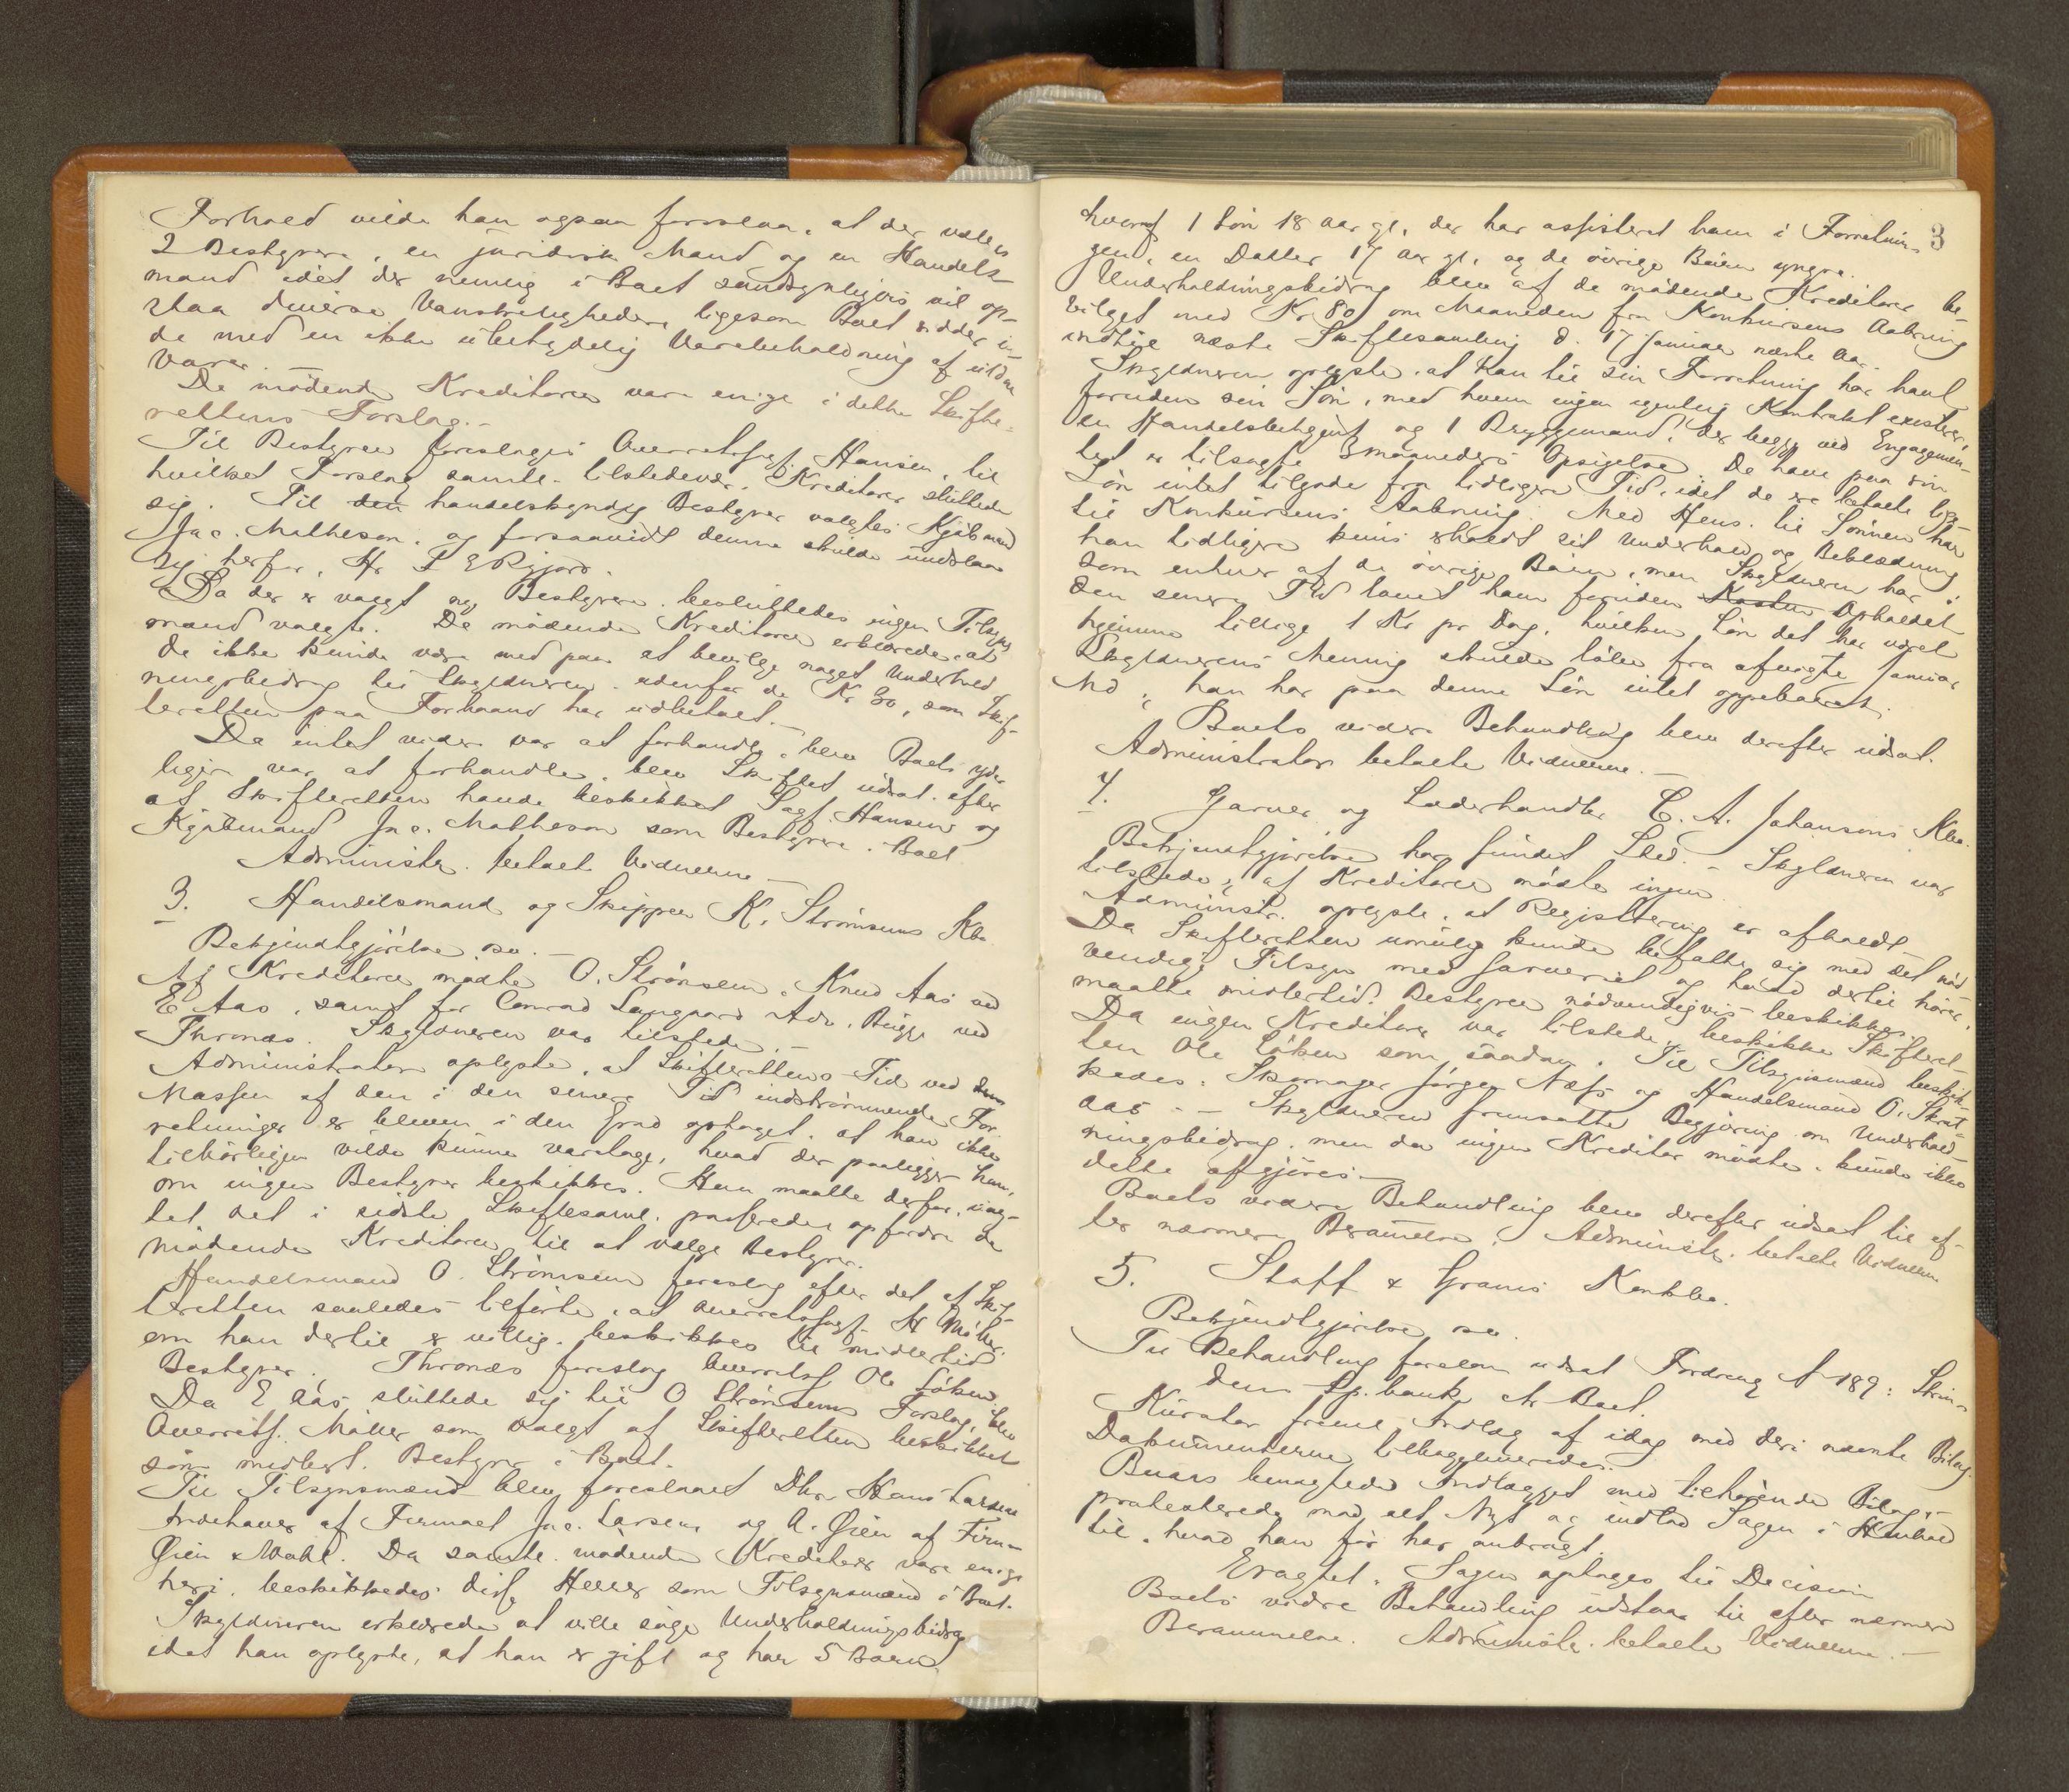 Forhold vilde han ogsaa foreslaa, at der valgtes
2 Bestyrere, en juridisk Mand og en Handels-
mand idet der nemlig i Boet sandsynligvis vil op-
staa diverse Vanskeligheder, ligesom Boet sidder in-
de med en ikke ubetydelig Varebeholdning af
Varer. —
De mødende Kreditorer vare enige i dette Skifte-
rettens Forslag. —
Til Bestyrer foresloges Overretssagf. Hansen, til
hvilket Forslag samtl. tilstedevær. Kreditorer sluttede
sig. Til den handelskyndig Bestyrer valgtes Kjøbmand
Jac. Matheson, og forsaavidt denne skulde undslaa
sig herfor, Hr
Da der er valgt Bestyrere, besluttedes ingen Tilsyns
mænd valgte. De mødende Kreditorer erklærede, at
de ikke kunde være med paa at bevilge noget Underhold-
ningsbidrag til Skyldneren udenfor de Kr 30, som Skif-
teretten paa Forhaand har udbetalt. —
Da intet videre var at forhandle, blev Boets yder
ligere var at forhandle, blev Skiftet udsat efter
at Skifteretten havde beskikket Sagf. Hansen og
Kjøbmand Jac. Matheson som Bestyrere i Boet.
Administr. betalt Vidnerne —
3. Handelsmand og Skipper K. Strømsens Kbo.
Bekjendtgjørelse so. —
Af Kreditorer mødte O. Strømsen, Knud Aas ved
E Aas, samt for Conrad Langaard Adv. Bugge ved
Thronæs. Skyldneren var tilstede. —
Administrator oplyste, at Skifterettens Tid ved den
Massen af den i den senere Tid indstrømmende For
retninger er bleven i den Grad optaget, at han ikke
tilbørligen vilde kunne varetage, hvad der paaligger ham,
om ingen Bestyrer beskikkes. Han maatte derfor,
tet det i sidste Skiftesaml. passerede, opfordre de
mødende Kreditorer til at vælge Bestyrer.
Handelsmand O. Strømsen foreslog efter det af Skif-
teretten saaledes tilførte, at Overretssagf. H Møller,
om han dertil er villig, beskikkes til midlertid
Bestyrer. Thronæs foreslog Overretssf. Ole Løken.
Da E Aas sluttede sig til O Strømsens Forslag, blev
Overretsf. Møller som valgt af Skifteretten beskikket
som midlert. Bestyrer i Boet.
Til Tilsynsmænd blev foreslaaet Dhr. Hans Larsen
Indehaver af Firmaet Jac. Larsen og A. Øien af Firma
Øien & Wahl. Da samtl. mødende Kreditorer vare enige
heri, beskikkedes disse Herrer som Tilsynsmænd i Boet.
Skyldneren erklærede at ville søge Underholdningsbidrag
idet han oplyste, at han er gift og har 5 Børn,
3
hvoraf 1 Søn 18 aar gl. der har assisteret ham i Forretnin-
gen, en Datter 17 aar gl., og de øvrige Børn yngre.
Underholdningsbidrag blev af de mødende Kreditorer be-
vilget med Kr 80 om Maaneden fra Konkursens Aabning
indtil næste Skiftesamling d. 17 Januar næste Aar.
Skyldneren oplyste, at han til sin Forretning har havt
foruden sin Søn, med hvem ingen egentlig Kontrakt existerer,
en Handelsbetjent og 1 Bryggemand, der begge ved Engagemen-
tet er tilsagte 3 maaneders Opsigelse. De have paa sin
Løn intet tilgode fra tidligere Tid, idet de ere betalte lige
til Konkursens Aabning. Med Hens. til Sønnen har
han tidligere kuns erholdt sit Underhold og Beklædning
som enhver af de øvrige Børn, men Skyldneren har i
den senere Tid lovet ham foruden Kosten Opholdet
hjemme tillige 1 Kr pr Dag, hvilken Løn det har været
Skyldnerens Mening skulde løbe fra afvigte Januar
Md; han har paa denne Løn intet oppebaaret.
Boets videre Behandling blev derefter udsat.
Administrator betalte Vidnerne. —
4. Garver og Læderhandler C. A. Johansens Kbo.
Bekjendtgjørelse har fundet Sted. — Skyldneren var
tilstede; af Kreditorer mødte ingen
Administr. oplyste, at Registrering er afholdt
Da Skifteretten umulig kunde befatte sig med det nød
vendige Tilsyn med Garveriet og hvad dertil hører,
maatte midlertid. Bestyrer nødvendigvis beskikkes.
Da ingen Kreditorer var tilstede, beskikke Skifteret-
ten Ole Løken som saadan. Til Tilsynsmænd beskik-
kedes: Skomager Jørgen Næss og Handelsmand O. Skrat-
aas. — Skyldneren fremsatte Begjæring om Underhold-
ningsbidrag, men da ingen Kreditor mødte, kunde ikke
dette afgjøres. —
Boets videre Behandling blev derefter udsat til ef-
ter nærmere Berammelse. Administr. betalte Vidnerne
5. Staff & Grams Konkbo.
Bekjendtgjørelse so.
Til Behandling forelaa udsat Fordring No 189: Strin-
dens Sp.bank ctr Boet.
Kurator fremL Indlæg af idag med deri nævnte Bilag.
Dokumenterne tilbageleveredes.
Buaas benægtede Indlægget med tilhørende Bilag, —
protesterede mod alt Nyt og indlod Sagen i Henhold
til, hvad han før har anbragt.
Eragtet. Sagen optages til Decision
Boets videre Behandling udstaar til efter nærmere
Berammelse. Administr. betalte Vidnerne. —